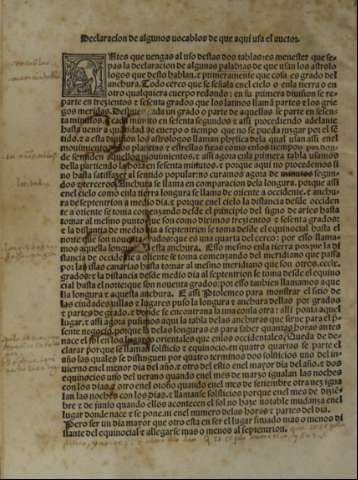 Declaracion de algunos vocablos de que aqui usa el auctor.
Antes que vengas al uso destas dos tablas: es menester que se
pas la declaracion de algunas palabras de que usan los astrolo
logos que desto hablan. z primeramente que cosa es grado del
anchura. Todo cerco que se señala en el cielo o en la tierra o en
otro qualquiera cuerpo redondo: en su primera division se re
parte en trezientos z sesenta grados que los latinos llamã partes z los grie
gos meridas. Despues cada un grado o parte de aquellas se parte en sesen
ta minutos. z cada minuto en sesenta segundos z assi procediendo adelante
hasta venir a quantidad de cuerpo o tiempo que no se pueda juzgar por el sẽ
tido. z a esta division los astrologos llaman phisica dela qual usan assi en el
movimiento delos planetas z estrellas fixas como enlos tiempos
de sentiden aquellos movimientos. z assi agora enla primera tabla usamos
della partiendo la hora en sesenta minutos. z porque aqui no procedemos si
no hasta satisfazer al sentido popular: no curamos agora de segun
dos z terceros. Anchura se llama en comparacion dela longura. porque assi
enel cielo como enla tierra longura se llama de oriente a occidente. z anchu
ra de septentrion a medio dia. z porque enel cielo la distancia desde occiden
te a oriente se toma començando desde el principio del signo de aries hasta
tornar al mesmo punto que son como diximos trezientos z sesenta grados:
z la distancia de medio dia a septentrion se toma desde el equinocial hasta el
norte que son noventa grados: que es una quarta del cerco: por esso llama
mos aquella longura z esta anchura. Esso mesmo enla tierra porque la di
stancia de occidente a oriente se toma començando del meridiano que passa
por las islas canarias hasta tornar al mesmo meridiano que son otros. ccclx.
grados: z la distancia desde medio dia al septentrion se toma desde el equino
cial hasta el norte: que son noventa grados: por esso tambien llamamos aque
lla longura z aquesta anchura. E assi Ptolemeo para mostrar el sitio de
las ciudades villas z lugares puso la longura z anchura dellas por grados
z partes de grado. z donde se encontrara la una con la otra: alli ponia aquel
lugar. z assi agora pusimos aqui la tabla delas anchuras que sirve para el p
sente negocio. porque la delas longuras es para saber quantas horas antes
nace el sol en los lugares orientales que enlos occidentales. Queda de de
clarar porque se llaman solsticio z equinocio. en quatro quartas se parte el
año las quales se distinguen por quatro terminos dos solsticios uno del in
vierno enel menor dia del año. z otro del estio enel mayor dia del año. z dos
equinocios uno del verano quando enel mes de março igualan las noches
con los dias. z otro enel otoño quando enel mes de setiembre otra vez igua
lan las noches con los dias. z llamanse solsticios porque enel mes de dizie
bre z de junio quando ellos acontecen el sol no haze notable mudança enel
lugar donde nace z se pone. ni enel numero delas horas z partes del dia.
Pero ser un dia mayor que otro esta en ser el lugar situado mas o menos di
stante del equinocial z allegarse mas o menos al septentrion.